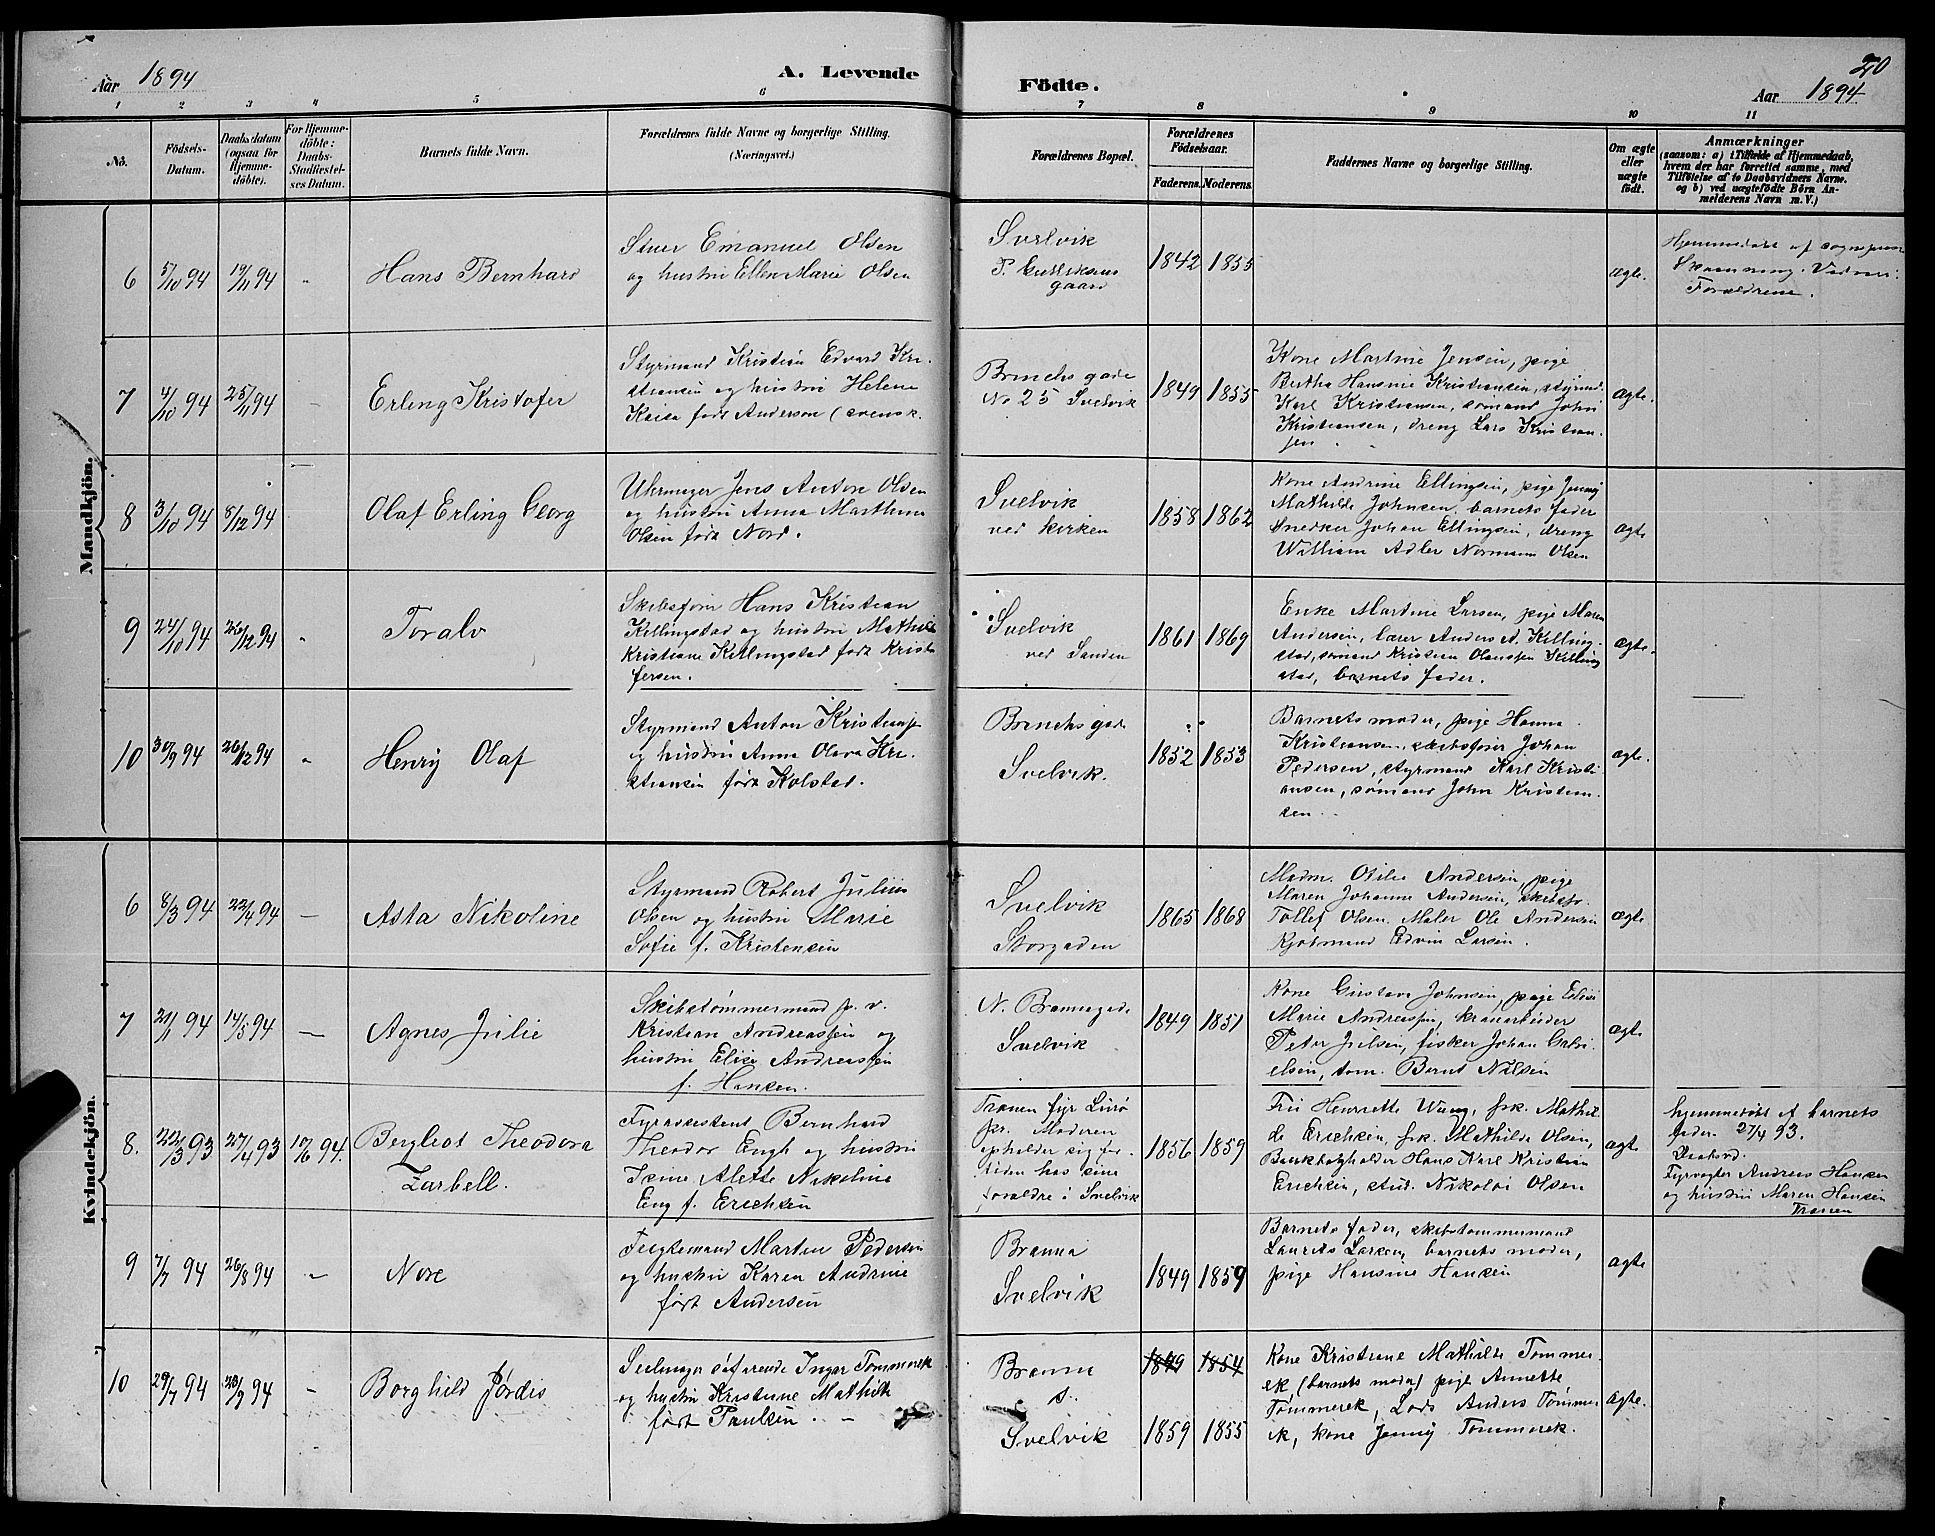 20
Aar 1894
A. Levende
Födte.
Aar 1894
1 2 3 4 5 6 7 8 9 10 11
No.
Födsels-
Datum.
Daabsdatum
(ogsaa for
Hjemme-
döbte).
For Hjemme-
döbte:
Daabs-
Stadfæstel-
ses Datum.
Barnets fulde Navn.
Forældrenes fulde Navne og borgerlige Stilling.
(Næringsvei.)
Forældrenes Bopæl.
Forældrenes
Födselsaar.
Faderens. Moderens.
Faddernes Navne og borgerlige Stilling.
Om ægte
eller
uægte
födt.
Anmærkninger
(saasom: a) i Tilfælde af Hjemmedaab,
hvem der har forrettet samme, med
Tilföielse af to Daabsvidners Navne.
og b) ved uægtefödte Börn An-
melderens Navn m. V.)
Mandkjön.
6 5/10 94 19/11 94 "
Hans Bernhard
Stuer Emanuel Olsen
og hustru Ellen Marie Olsen
Svelvik
P. Gulliksens
gaard
1842 1855
ægte.
Hjemmedøbt af sognepræst
Skaanning. Vidner:
Forældrene.
7 4/10 94 25/11 94 –
Erling Kristofer
Styrmand Kristian Edvard Kri-
stiansen og hustru Helene
Kaisa født Anderson (svensk.
Brenchs gade
No 25 Svelvik
1849 1855
Kone Martine Jensen, pige
Bertha Hansine Kristiansen, styrmd.
Karl Kristiansen, sømand John
Kristiansen, dreng Lars Kristian-
sen
ægte.
8 3/10 94 8/12 94
Olaf Erling Georg
Uhrmager Jens Anton Olsen
og hustru Anna Marthine
Olsen født Nord.
Svelvik
ved kirken
1858 1862
Kone Andrine Ellingsen, pige Jenny
Mathilde Johnsen, barnets fader
snedker Johan Ellingsen, dreng
William Adler Normann Olsen
ægte
9 24/10 94 25/12 94 "
Toralv
Skibsfører Hans Kristian
Killingstad og hustru Mathilde
Kristiane Killingstad født Kristo
fersen.
Svelvik
ved Sanden
1861 1869
Enke Martine Larsen, pige Maren
Andersen, lærer Anders A. Killing-
stad, sømand Kristian Olaussen Killing
stad, barnets fader.
ægte.
10 30/9 94 26/12 94 "
Henry Olaf
Styrmand Anton Kristiansen
og hustru Anna Olava Kri-
stiansen født Kolstad.
Brenchs gade
Svelvik.
1852 1853
Barnets moder, pige Hanna
Kristiansen, skibsfører Johan
Pedersen, styrmand Karl Kristi-
ansen, sømand John Kristian-
sen.
ægte.
Kvindekjön.
6 8/3 94 22/4 94 –
Asta Nikoline
Styrmand Robert Julius
Olsen og hustru Marie
Sofie f. Kristensen
Svelvik
Storgaden
1865 1868
Madm. Otilie Andersen, pige
Maren Johanne Andersen, skibsfr.
Tollef Olsen. Maler Ole Andersen
Kjøbmand Edvin Larsen.
ægte
7 21/1 94 14/5 94 –
Agnes Julie
Skibstømmermand p. v.
Kristian Andreassen og
hustru Elise Andreassen
f. Hansen.
N. Brannagade
Svelvik
1849 1851
Kone Gustava Johnsen, pige Elise
Marie Andreassen, kranarbeider
Peter Juelsen, fisker Johan Gabri-
elsen, tom. Bernt Nielsen
ægte
8. 22/3 93 27/4 93 10/6 94.
Bergliot Theodora
Zarbell.
Fyrassistent Bernhard
Theodor Engh og hustru
Trine Alette Nikoline
Eng f. Erichsen
Tranen fyr
Moderen
opholder sig for
tiden hos sine
forældre i Svelvik
1856 1859
Fru Henriette Wung, frk. Mathil
de Erichsen, frk. Mathilde Olsen,
Bankbogholder Hans Karl Kristian
Erichsen, stud. Nikolai Olsen
ægte
hjemmedøbt af barnets
fader. 27/4 93.
Fyrvogter Andreas Hansen
og hustru Maren Hansen
Tranen
9 7/7 94 26/8 94 –
Nore
Fragtemand Martin Pedersen
og hustru Karen Andrine
født Andersen
Branna
Svelvik
1849 1859
Barnets fader, skibstømmermand
Laurits Larsen, barnets moder,
pige Hansine Hansen
ægte
10 29/7 94 28/9 94 –
Borghild Jørdis
Seilmager søfarende Ingar Tømmerek
og hustru Kristiane Mathilde
født Paulsen. –
Branna
s.
Svelvik
1849 1854
1859 1855
Kone Kristiane Mathilde Tømmer-
ek (barnets moder) pige Annette
Tømmerek, Lods Anders Tømmer
ek, kone Jenny Tømmerek.
ægte.